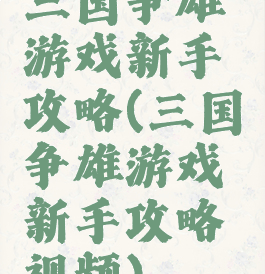 三国争雄
游戏新手
攻略(三国
争雄游戏
新手攻略
视频)